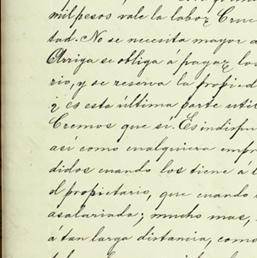 mil pesos vale la labor Cruc
tad. No se necesita mayor a
Arriga se obliga á pagar los
rio, y se reserva la propied
¿ es esta última parte util
Creemos que sí. Es indispu
así como cualquiera empr
didos cuando los tiene á l
el propietario, que cuando
asalariada; mucho mas,
á tan larga distancia, como